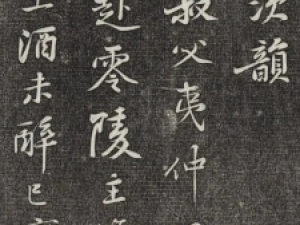 次韻
叔父夷仲
赴零陵主
酒未醉已